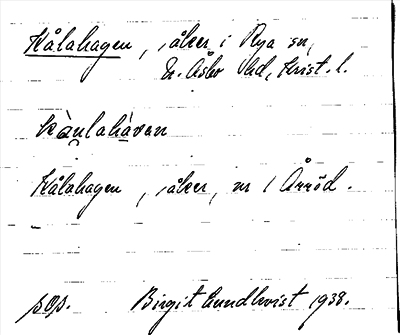 Kålahagen, åker i Rya sn,
N. Åsbo hd, Krist. l.
kàulahàvan
Kålahagen, åker, nr 1 Årröd.
sOp. Birgit Lundkvist 1938.